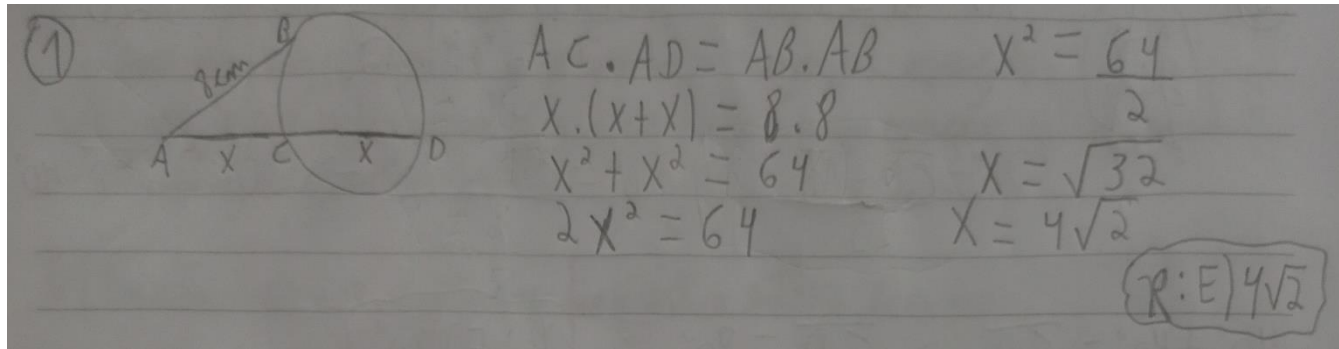 1
B
8cm
A x C x D
AC . AD = AB . AB
x . (x + x) = 8 . 8
x² + x² = 64
2x² = 64
x² = 64/2
x = √32
x = 4√2
R: E) 4√2